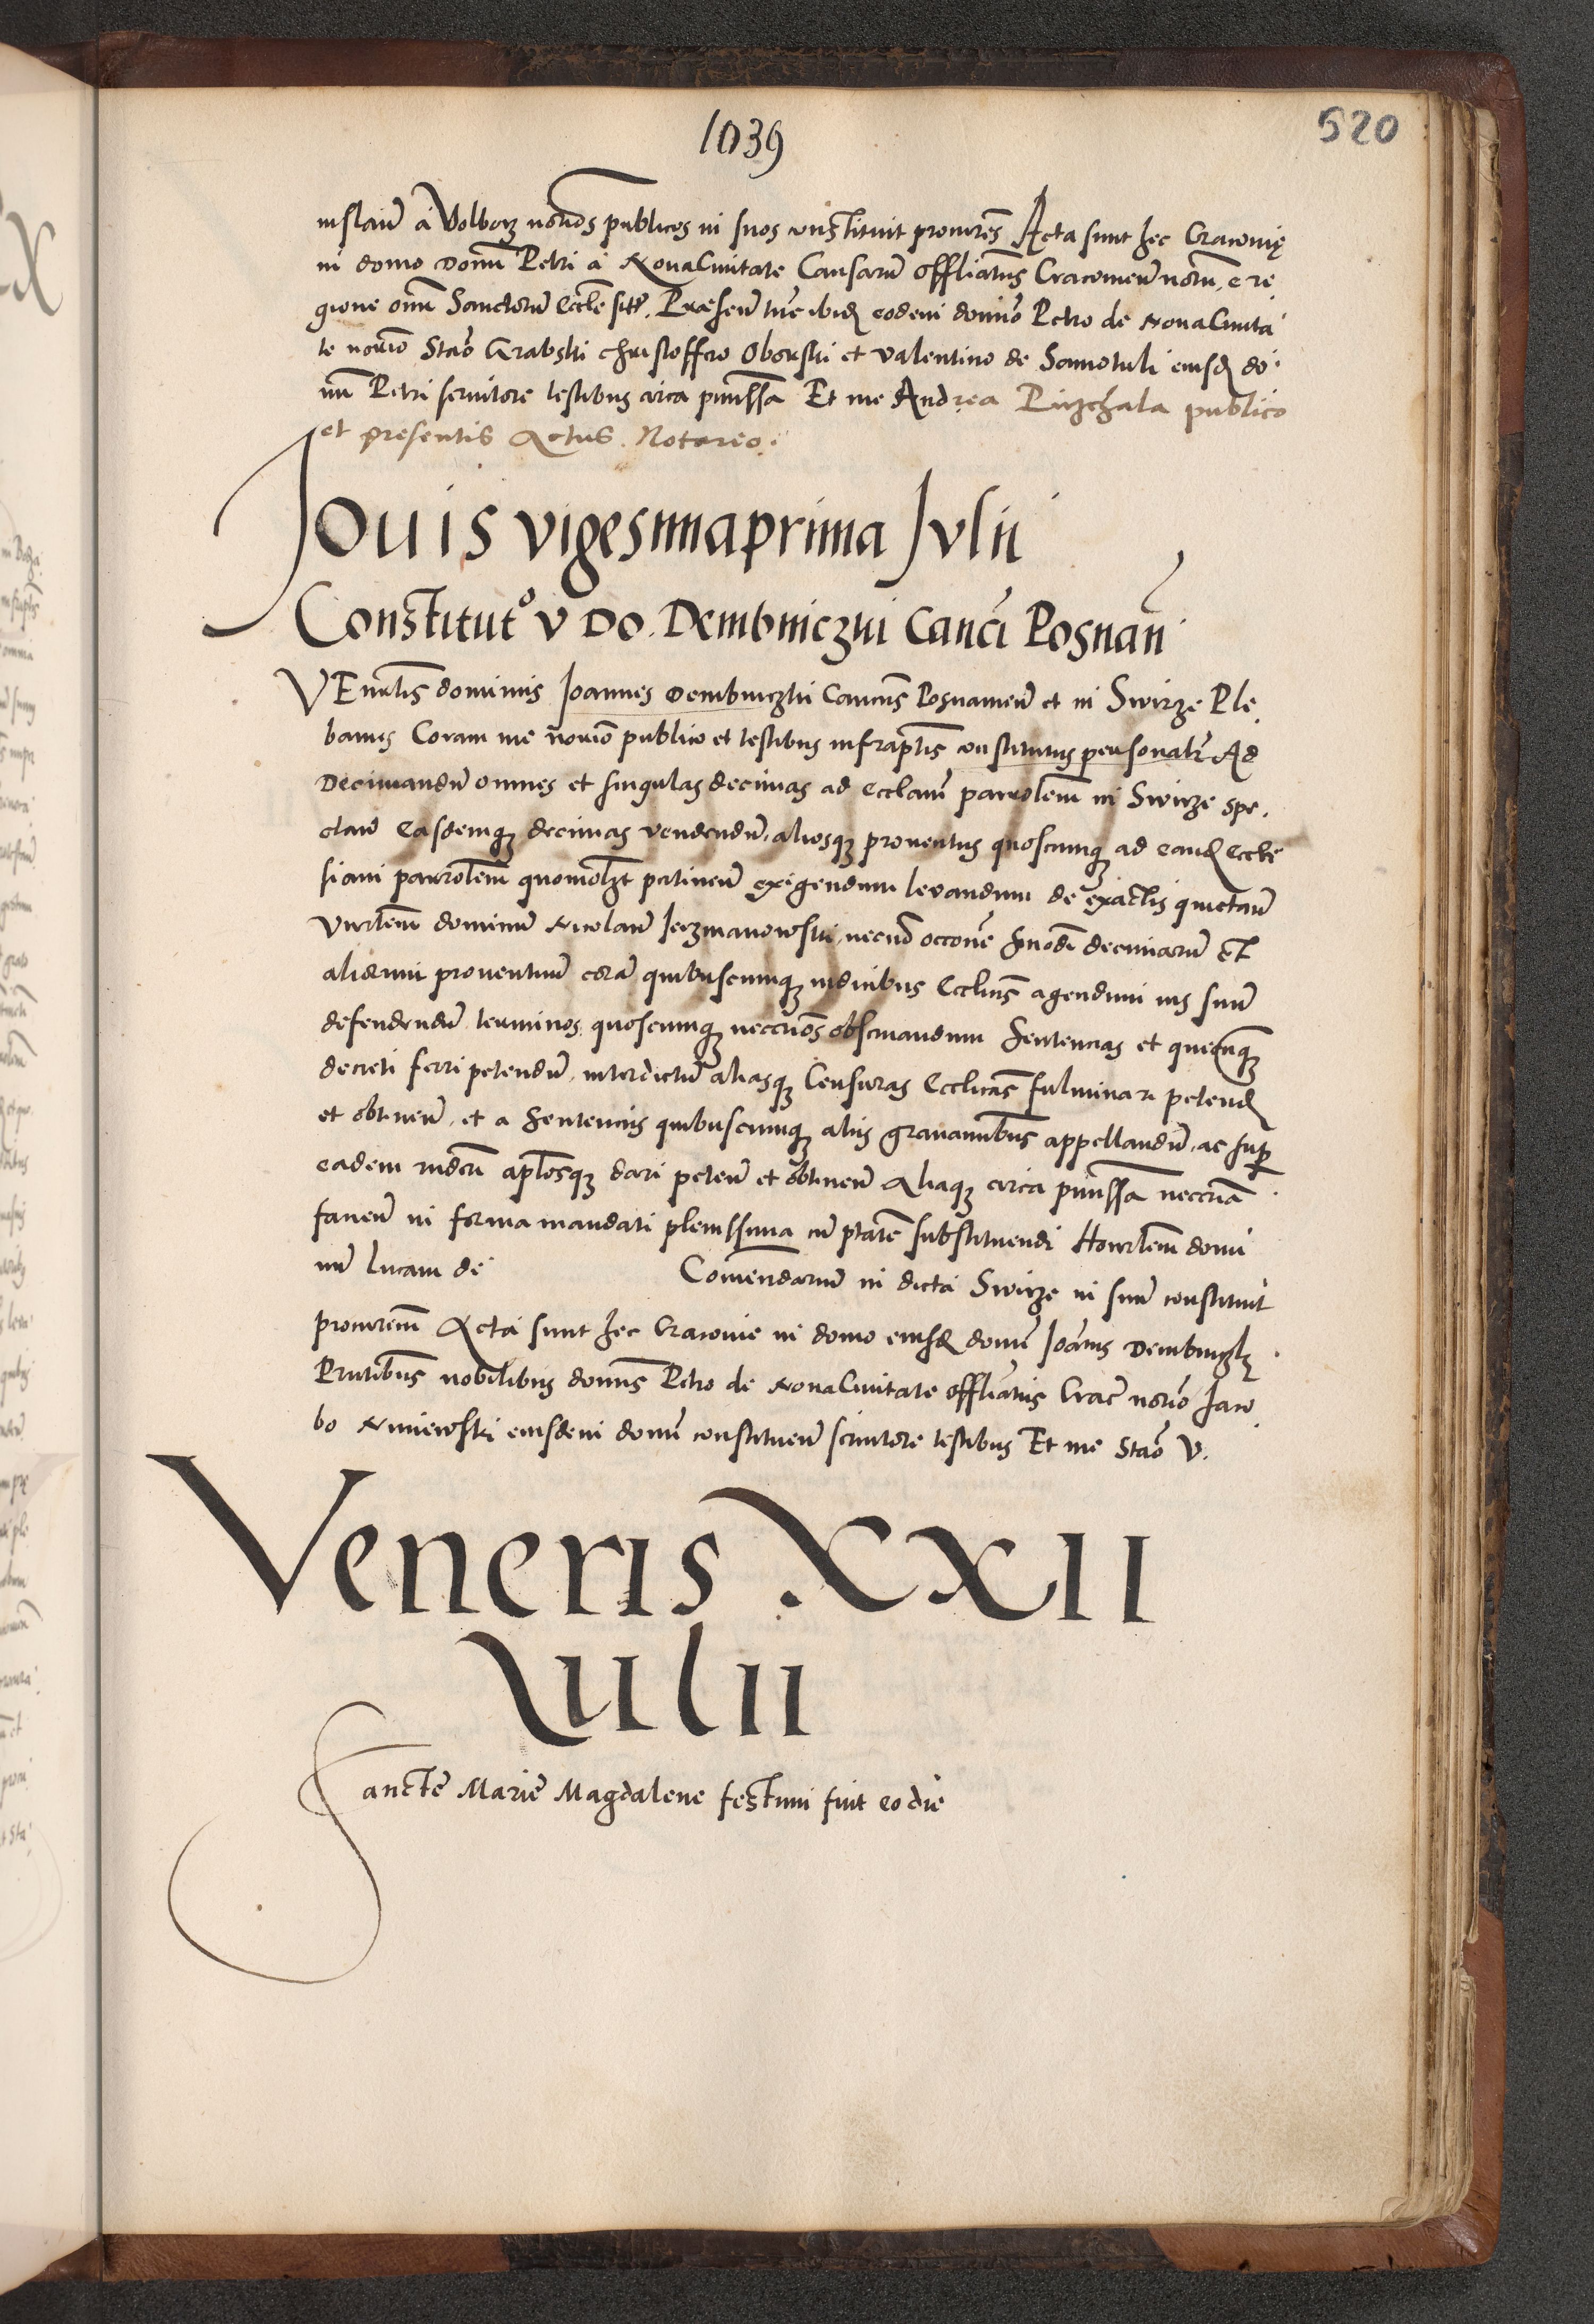 1039
520
nislaum a Volborz notorios publicos in suos constituit procuratores Acta sunt hec Cracovię
in domo Domini Petri a Nova Civitate Causarum offliatus Cracovien notarii, e re
gione omnium Sanctorum Eccle site. Præsen tunc ibidem eodem domino Petro de Nova Civita
te notario Stao Grabski christoffero Oborski et Valentino de Samotuli eiusd do
mini Petri servitore testibus circa pmissa Et me Andrea Pinzchala publico
et presentis Actus Notareo.
Jovis vigesimaprima Julii
Constituto V Do. Dembniczki Canci Posnan
VEnrlis dominus Joannes Dembniczki Canonicus Posnanien et in Swirze Ple
banus Coram me notario publico et testibus infraptis constitutus personalr Ad
Decimandum omnes et singulas decimas ad Ecclam parrolem in Swirze spe
ctan Easdemq decimas vendendum, aliosq proventus quoscunq ad eand Eccle
siam parrolem quomolt pertinen exigendum levandum de exactis quietan
Vnrlem dominum Nicolaum Jerzmanowski, necnon occone hmodi decimarum Et
aliorum proventuum coram quibuscunq iudicibus Ecclicis agendum ius suum
defendendum terminos quoscunq neccrios observandum Sentencias et quecunq
decreti ferri petendum, interdictum aliasq Censuras Ecclicas fulminari petend
et obtinen, et a Sentenciis quibuscunq aliis gravaminibus appellandum, ac sup
eadem aplosq dari peten et obtinen Aliaq circa pmissa neccria
facien in forma mandati plenissima cum ptate substituendi Honrlem domi
num Lucam de Comendarium in dicta Swirze in suum constituit
procurem Acta sunt hec Cracovie in domo eiusd domini Joannis Dembnizk
Pntibus nobilibus dominis Petro de Nova Civitate offliatus Crac notario Jaco
bo Nimewski eiusdem domini constituen servitore testibus Et me Stao V.
Veneris XXII
Iulii
Sancte Marie Magdalene festum fuit eo die